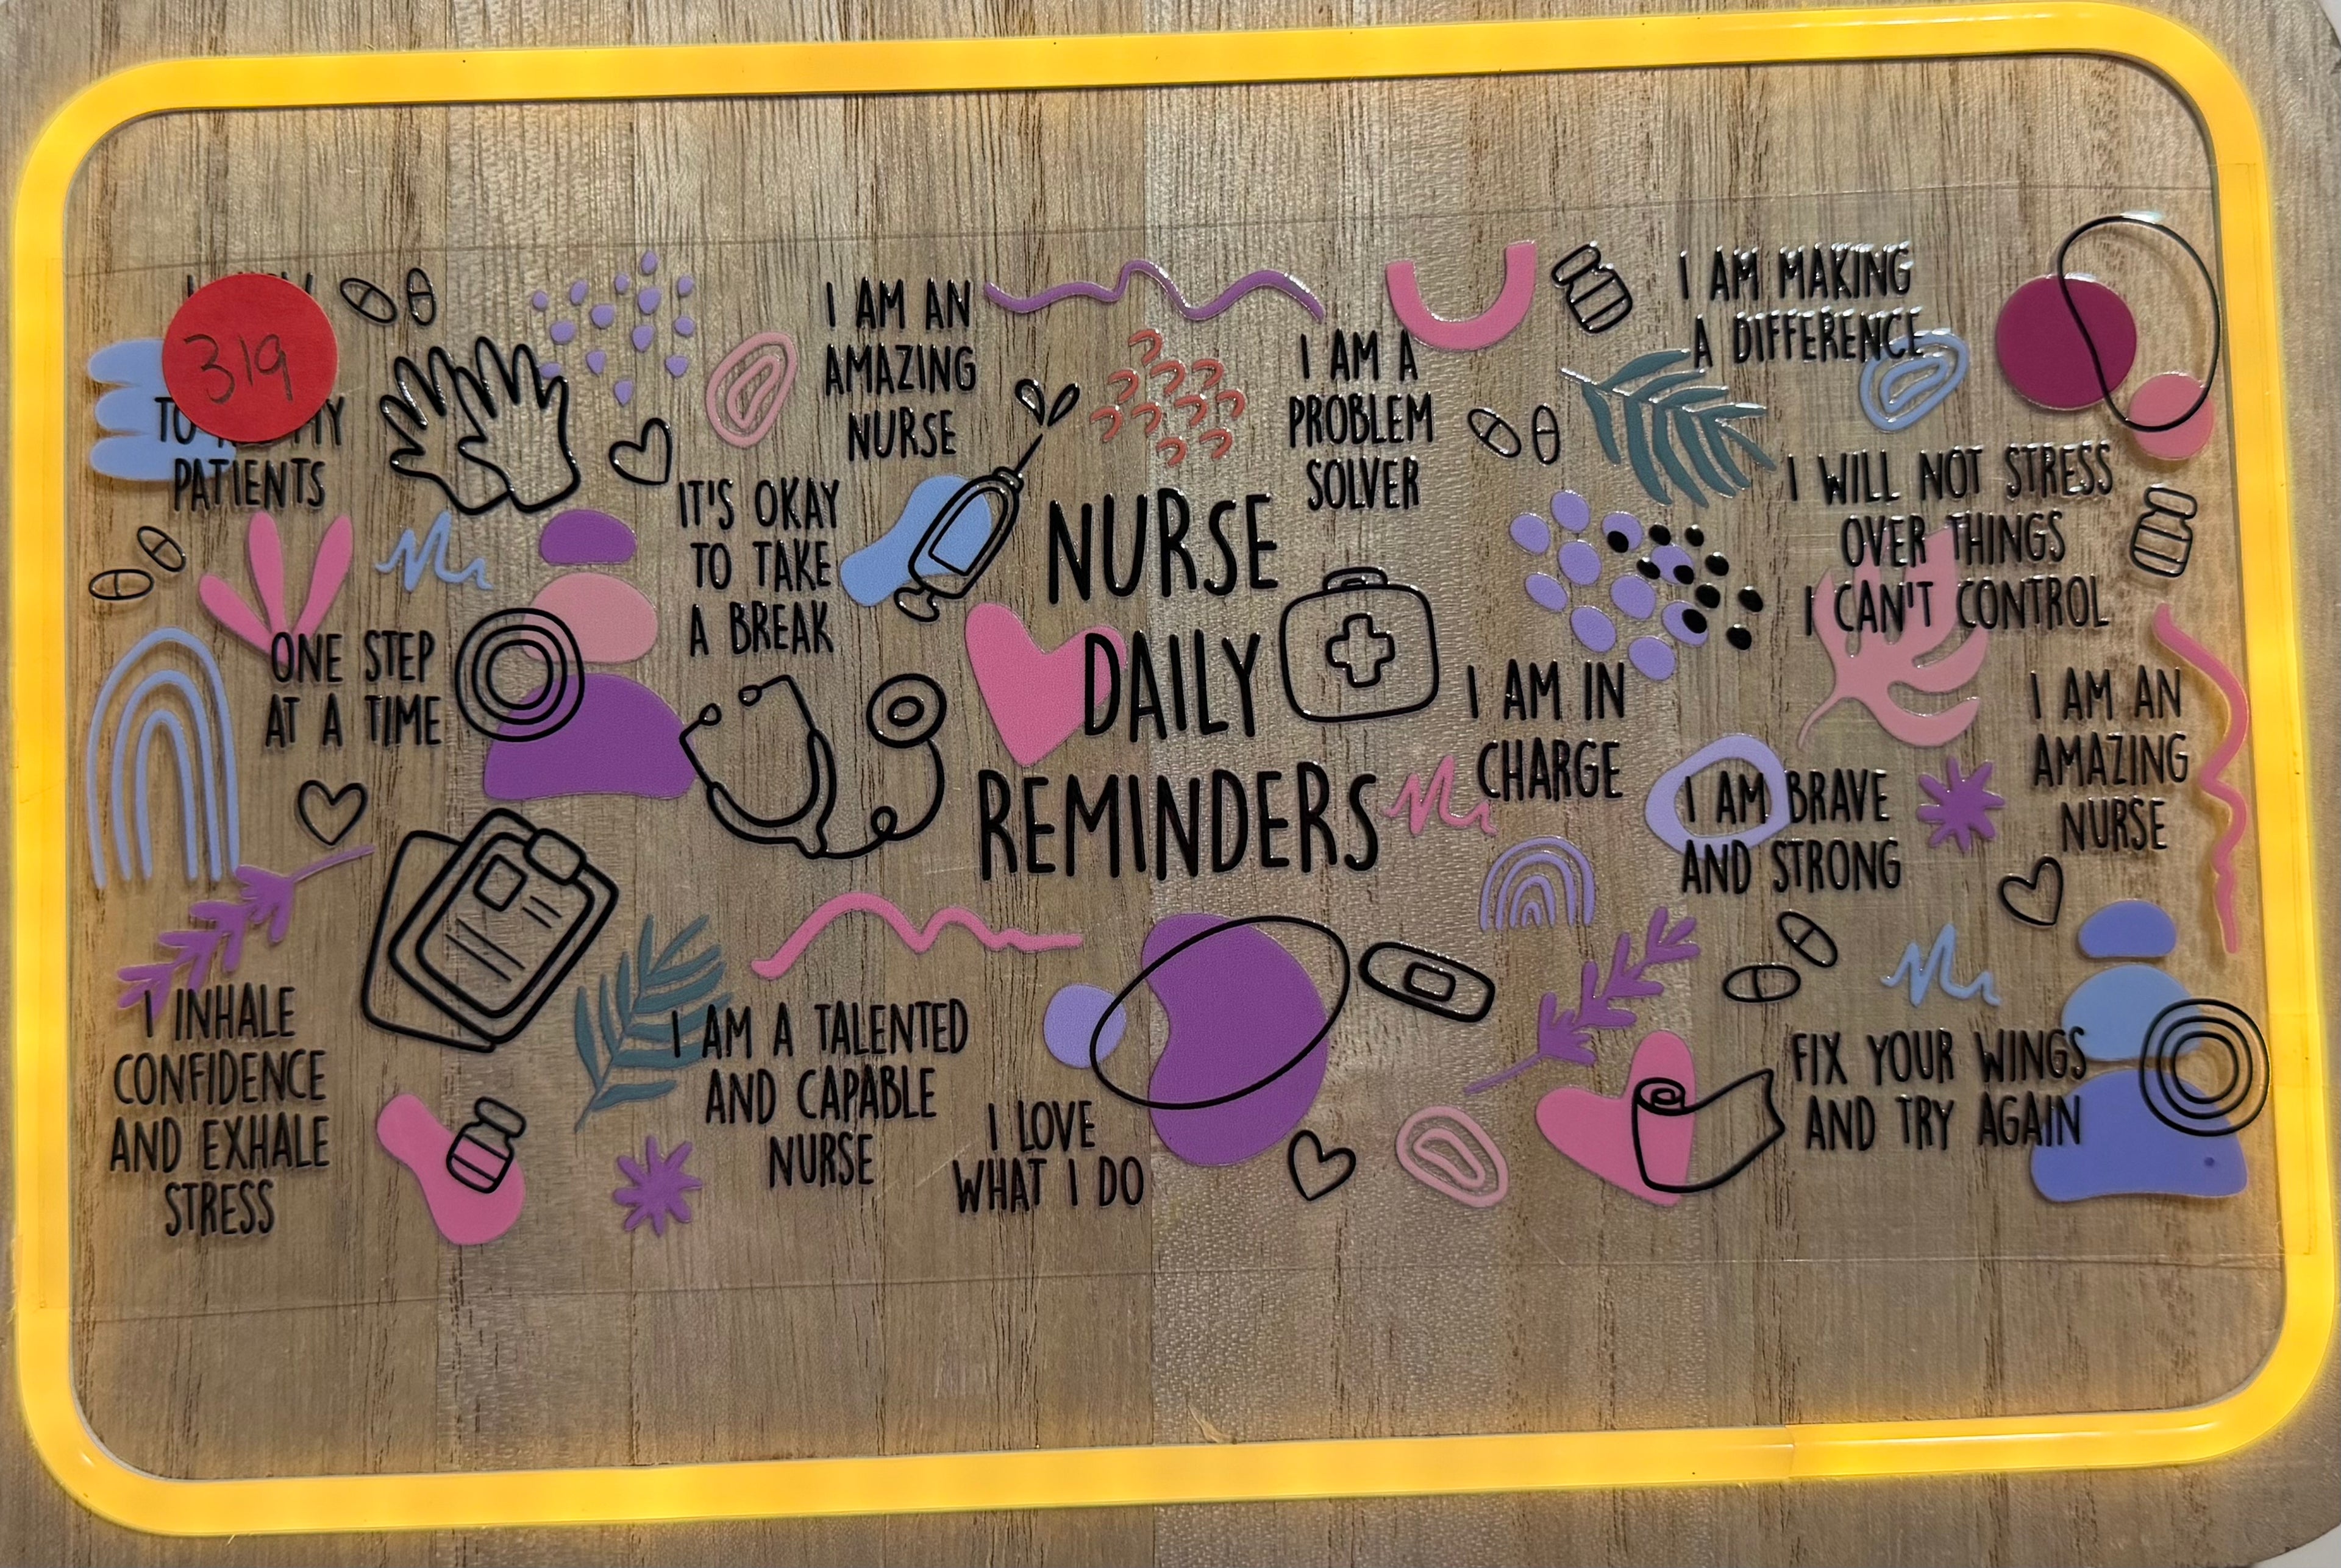 319
PATIENTS
I AM AN
AMAZING
NURSE
IT'S OKAY
TO TAKE
A BREAK
ONE STEP
AT A TIME
I INHALE
CONFIDENCE
AND EXHALE
STRESS
I AM A TALENTED
AND CAPABLE
NURSE
NURSE
DAILY
REMINDERS
I LOVE
WHAT I DO
I AM A
PROBLEM
SOLVER
I AM MAKING
A DIFFERENCE
I WILL NOT STRESS
OVER THINGS
I CAN'T CONTROL
I AM IN
CHARGE
I AM BRAVE
AND STRONG
I AM AN
AMAZING
NURSE
FIX YOUR WINGS
AND TRY AGAIN